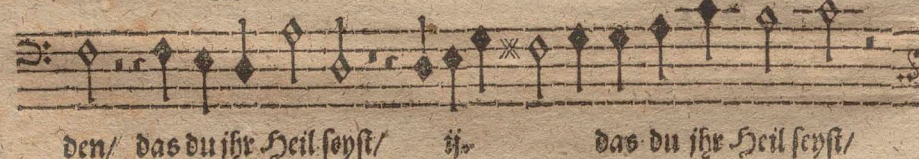 den/ das du jhr Heil seyst/ ij. das du jhr Heil seyst/